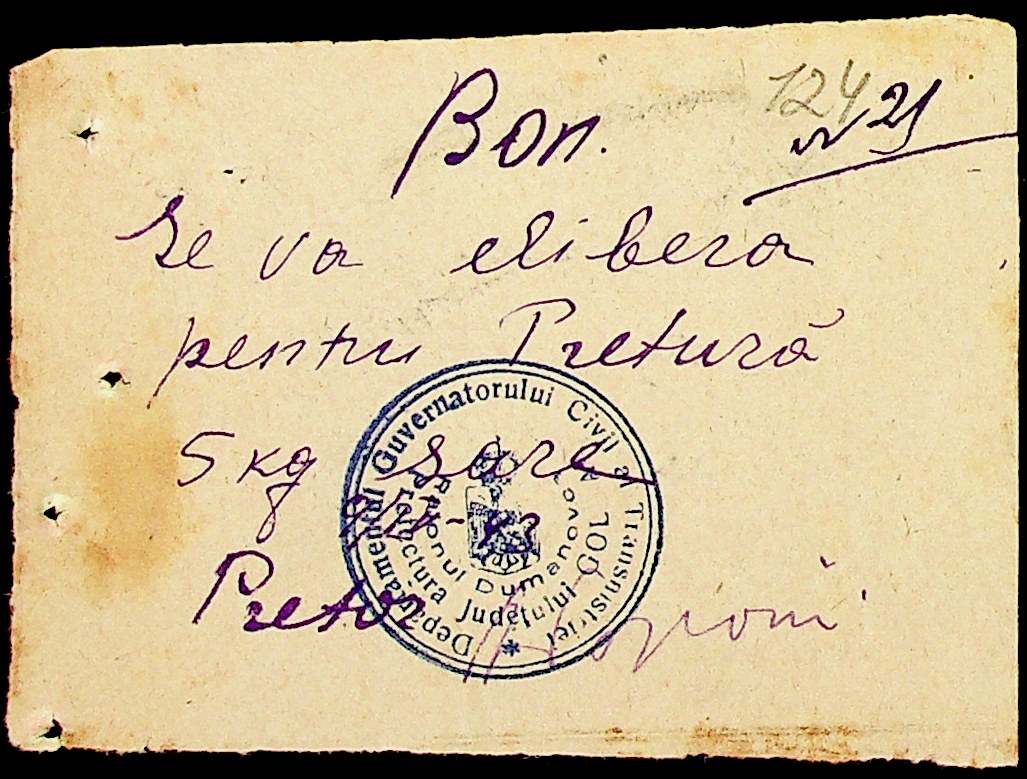 124
Bon. № 21
Se va elibera
pentru Pretură
5 kg sare
Pretor
Departamentul Guvernatorului Civil al Transnistriei *
Prefectura Județului GOL
Raionul Dumanovo